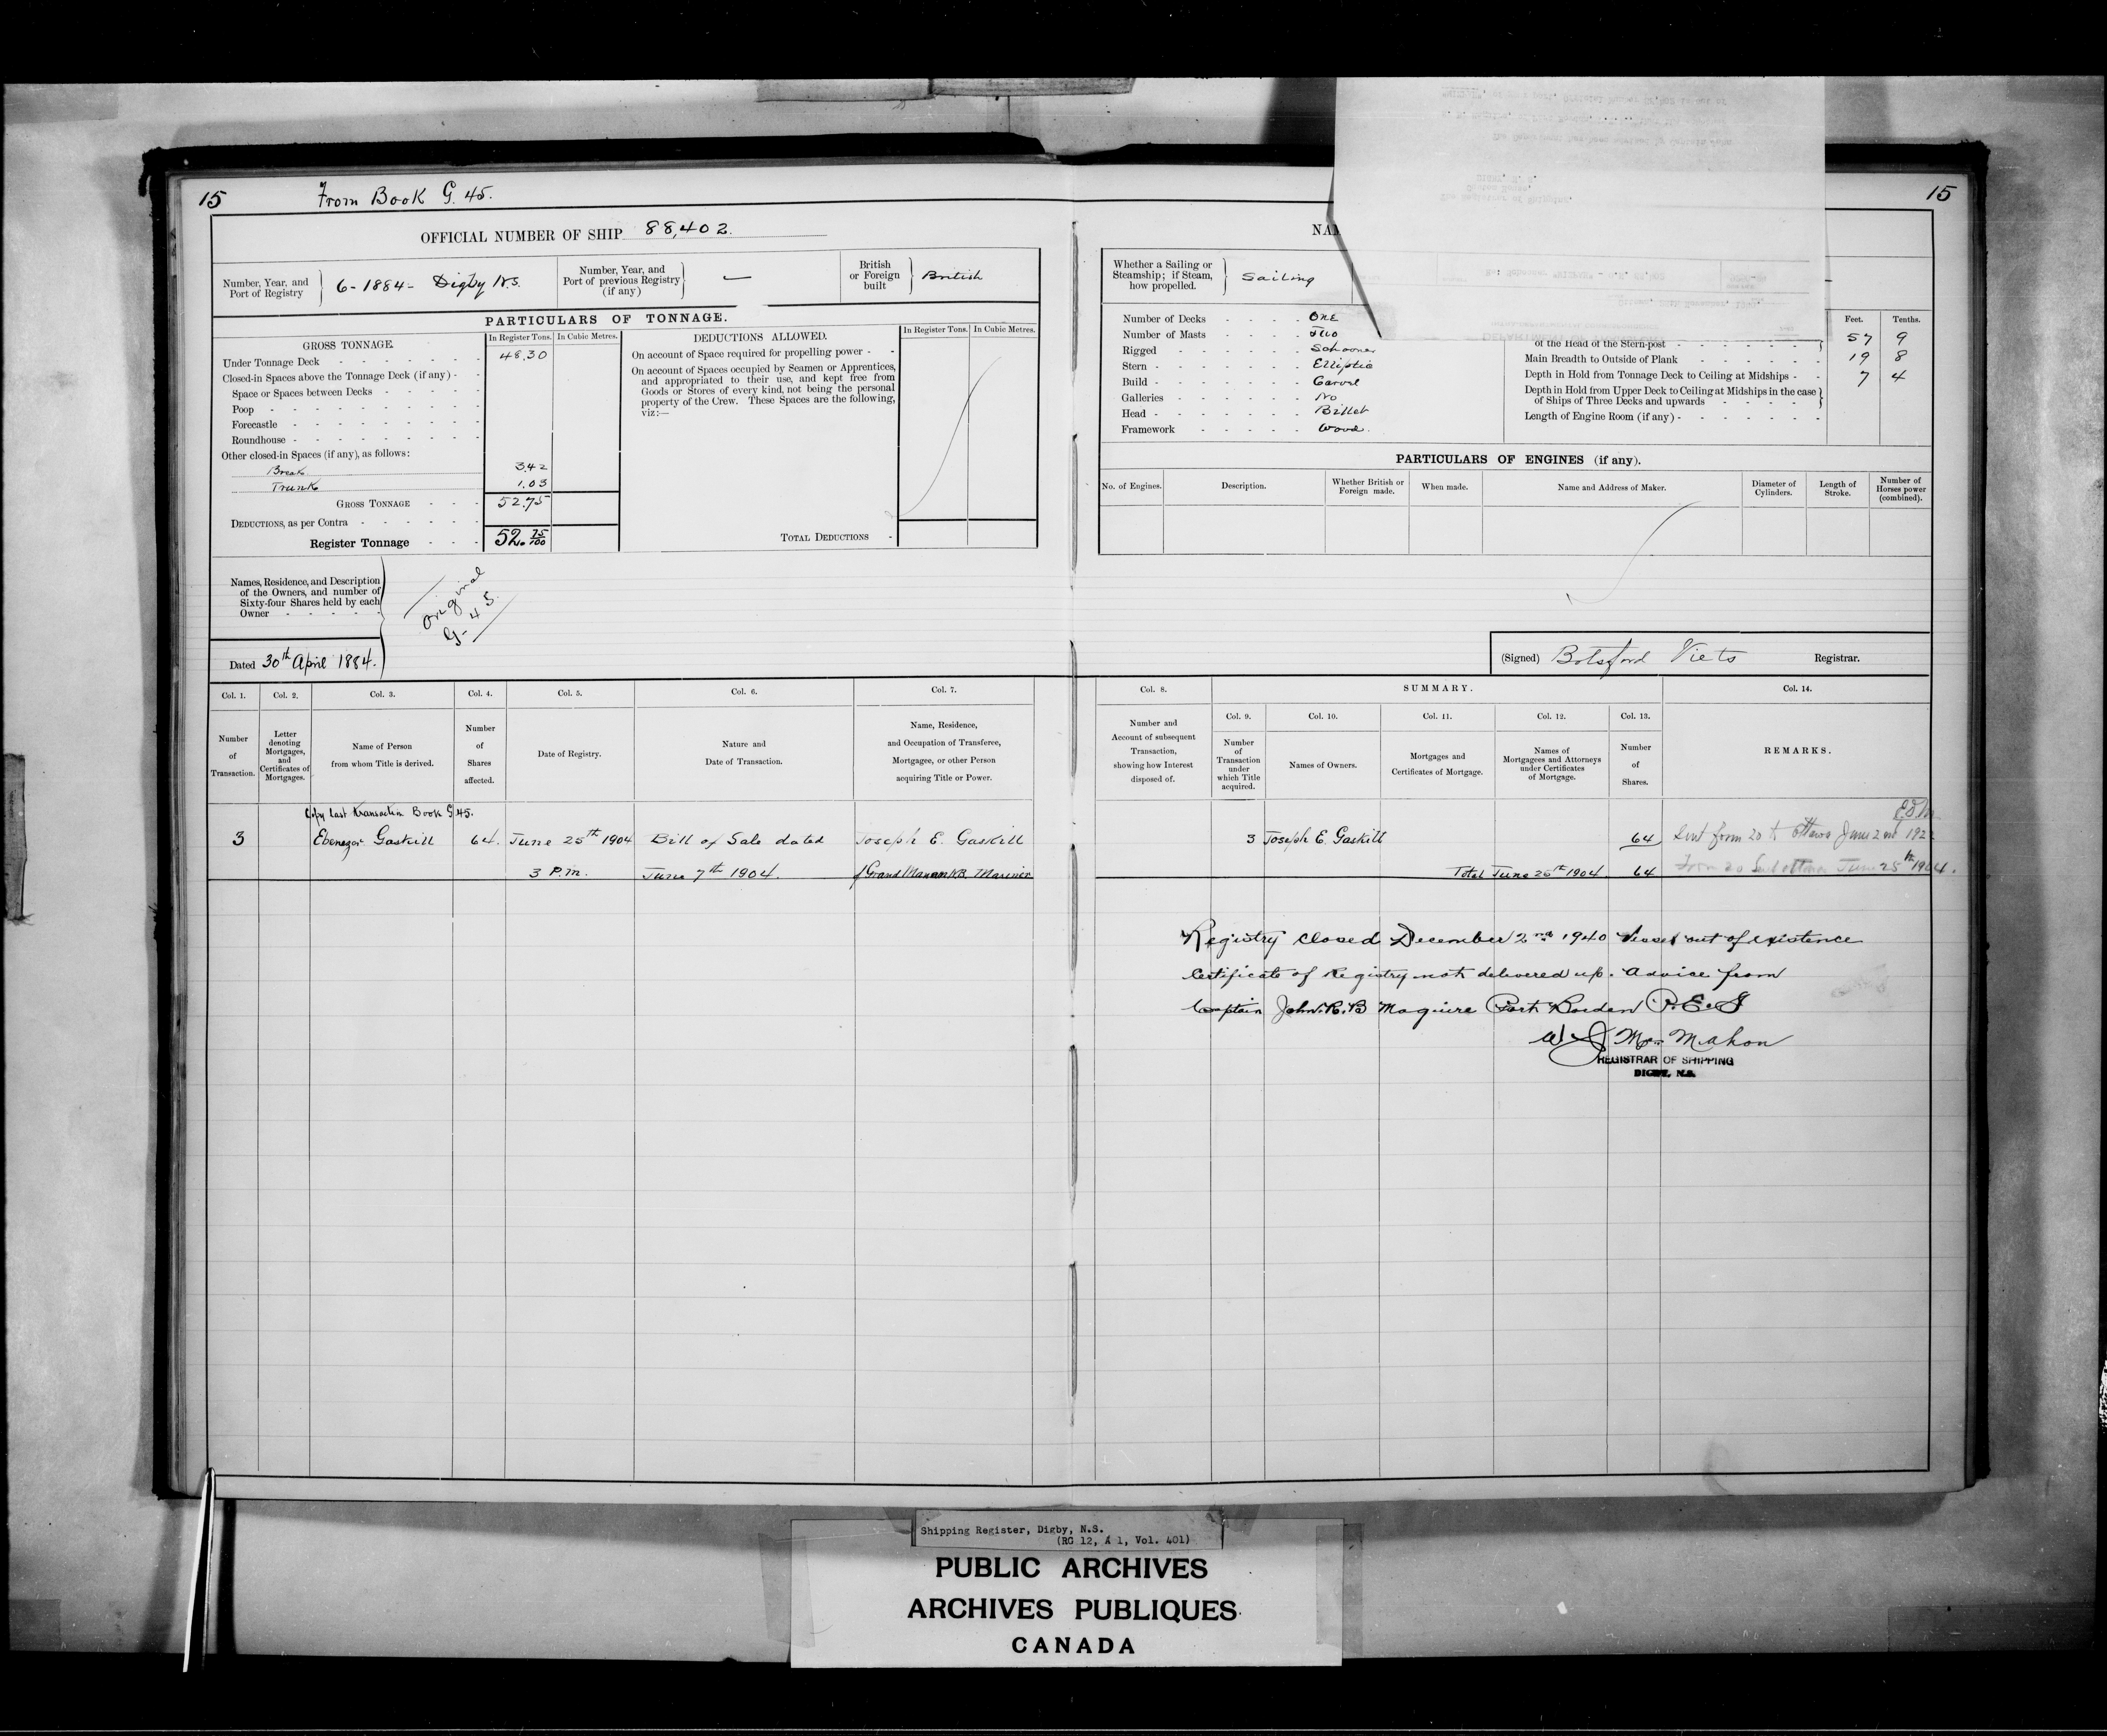 15
From Book G. 45.
OFFICIAL NUMBER OF SHIP 88,402.
Number, Year, and Port of Registry } 6-1884- Digby N.S.
Number, Year, and Port of previous Registry (if any) } —
British or Foreign built } British
PARTICULARS OF TONNAGE.
GROSS TONNAGE.
In Register Tons. In Cubic Metres.
Under Tonnage Deck 48.30
Closed-in Spaces above the Tonnage Deck (if any) -
Space or Spaces between Decks
Poop
Forecastle
Roundhouse
Other closed-in Spaces (if any), as follows:
Break 3.42
Trunk 1.03
GROSS TONNAGE 52.75
DEDUCTIONS, as per Contra
Register Tonnage 52. 75/100
DEDUCTIONS ALLOWED.
In Register Tons. In Cubic Metres.
On account of Space required for propelling power -
On account of Spaces occupied by Seamen or Apprentices,
and appropriated to their use, and kept free from
Goods or Stores of every kind, not being the personal
property of the Crew. These Spaces are the following,
viz:—
TOTAL DEDUCTIONS
Names, Residence, and Description
of the Owners, and number of
Sixty-four Shares held by each
Owner
Original
G-45.
Dated 30th April 1884.
Col. 1. Col. 2. Col. 3. Col. 4. Col. 5. Col. 6. Col. 7.
Number of Transaction.
Letter denoting Mortgages, and Certificates of Mortgages.
Name of Person from whom Title is derived.
Number of Shares affected.
Date of Registry.
Nature and Date of Transaction.
Name, Residence, and Occupation of Transferee, Mortgagee, or other Person acquiring Title or Power.
Copy last transaction Book G 45.
3 Ebenezer Gaskill 64. June 25th 1904 Bill of Sale dated Joseph E. Gaskill
3 P.m. June 7th 1904. of Grand Manan N.B. Mariner
15
NAM
Whether a Sailing or Steamship; if Steam, how propelled. } Sailing
Number of Decks One
Number of Masts Two
Rigged Schooner
Stern Elliptic
Build Carvel
Galleries No
Head Billet
Framework Wood.
Feet. Tenths.
of the Head of the Stern-post 57 9
Main Breadth to Outside of Plank 19 8
Depth in Hold from Tonnage Deck to Ceiling at Midships - 7 4
Depth in Hold from Upper Deck to Ceiling at Midships in the case
of Ships of Three Decks and upwards
Length of Engine Room (if any) -
PARTICULARS OF ENGINES (if any).
No. of Engines. Description. Whether British or Foreign made. When made. Name and Address of Maker. Diameter of Cylinders. Length of Stroke. Number of Horses power (combined).
(Signed) Botsford Viets Registrar.
Col. 8. SUMMARY. Col. 14.
Col. 9. Col. 10. Col. 11. Col. 12. Col. 13.
Number and Account of subsequent Transaction, showing how Interest disposed of.
Number of Transaction under which Title acquired.
Names of Owners.
Mortgages and Certificates of Mortgage.
Names of Mortgagees and Attorneys under Certificates of Mortgage.
Number of Shares.
REMARKS.
3 Joseph E. Gaskill 64 Sent form 20 to Ottawa June 2nd
Total June 25th 1904. 64 Form 20 Sent Ottawa June 25th 1904.
Registry closed December 2nd 1940 Vessel out of existence
Certificate of Registry not delivered up. Advice from
Captain John. R. B Maguire Port Borden P.E.I
W J MacMahon
REGISTRAR OF SHIPPING
DIGBY, N.S.
Shipping Register, Digby, N.S.
(RG 12, A 1, Vol. 401)
PUBLIC ARCHIVES
ARCHIVES PUBLIQUES
CANADA